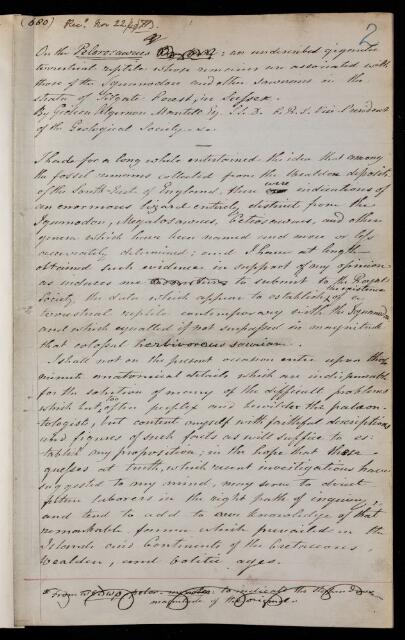 (680) Recd Nov 22 1849
2
On the Pelorosaurus; an undescribed gigantic
terrestrial reptile whose remains are associated with
those of the Iguanodon and other saurians in the
strata of Tilgate Forest, in Sussex.
By Gideon Algernon Mantell Esq. LL.D. F.R.S. Vice-President
of the Geological Society &c.
I have for a long while entertained the idea that among
the fossil remains collected from the Wealden deposits
of the South-East of England, there were indications of
an enormous lizard entirely distinct from the
Iguanodon, Megalosaurus, Cetiosaurus, and other
genera which have been named and more or less
accurately determined; and I have at length
obtained such evidence in support of my opinion
as induces me to submit to the Royal
Society the data which appear to establish the existence of a
terrestrial reptile contemporary with the Iguanodon
and which equalled if not surpassed in magnitude
that colossal herbivorous saurian.
I shall not on the present occasion enter upon those
minute anatomical details which are indispensable
for the solution of many of the difficult problems
which but too often perplex and bewilder the palæon-
tologist, but content myself with faithful descriptions
and figures of such facts as will suffice to es-
tablish my proposition; in the hope that these
guesses at truth, which recent investigations have
suggested to my mind, may serve to direct
fellow laborers in the right path of inquiry,
and tend to add to our knowledge of that
remarkable fauna which prevailed in the
Islands and Continents of the Cretaceous,
Wealden, and Oolitic ages.
* From pelor to indicate the
magnitude of the